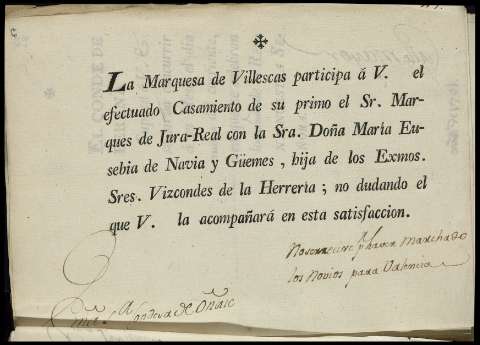 La Marquesa de Villescas participa á V. el
efectuado Casamiento de su primo el Sr. Mar-
ques de Jura-Real con la Sra. Doña María Eu-
sebia de Navia y Güemes, hija de los Exmos.
Sres. Vizcondes de la Herrería; no dudando el
que V. la acompañará en esta satisfaccion.
haver Marchado
los Novios para Valencia
de Oñate